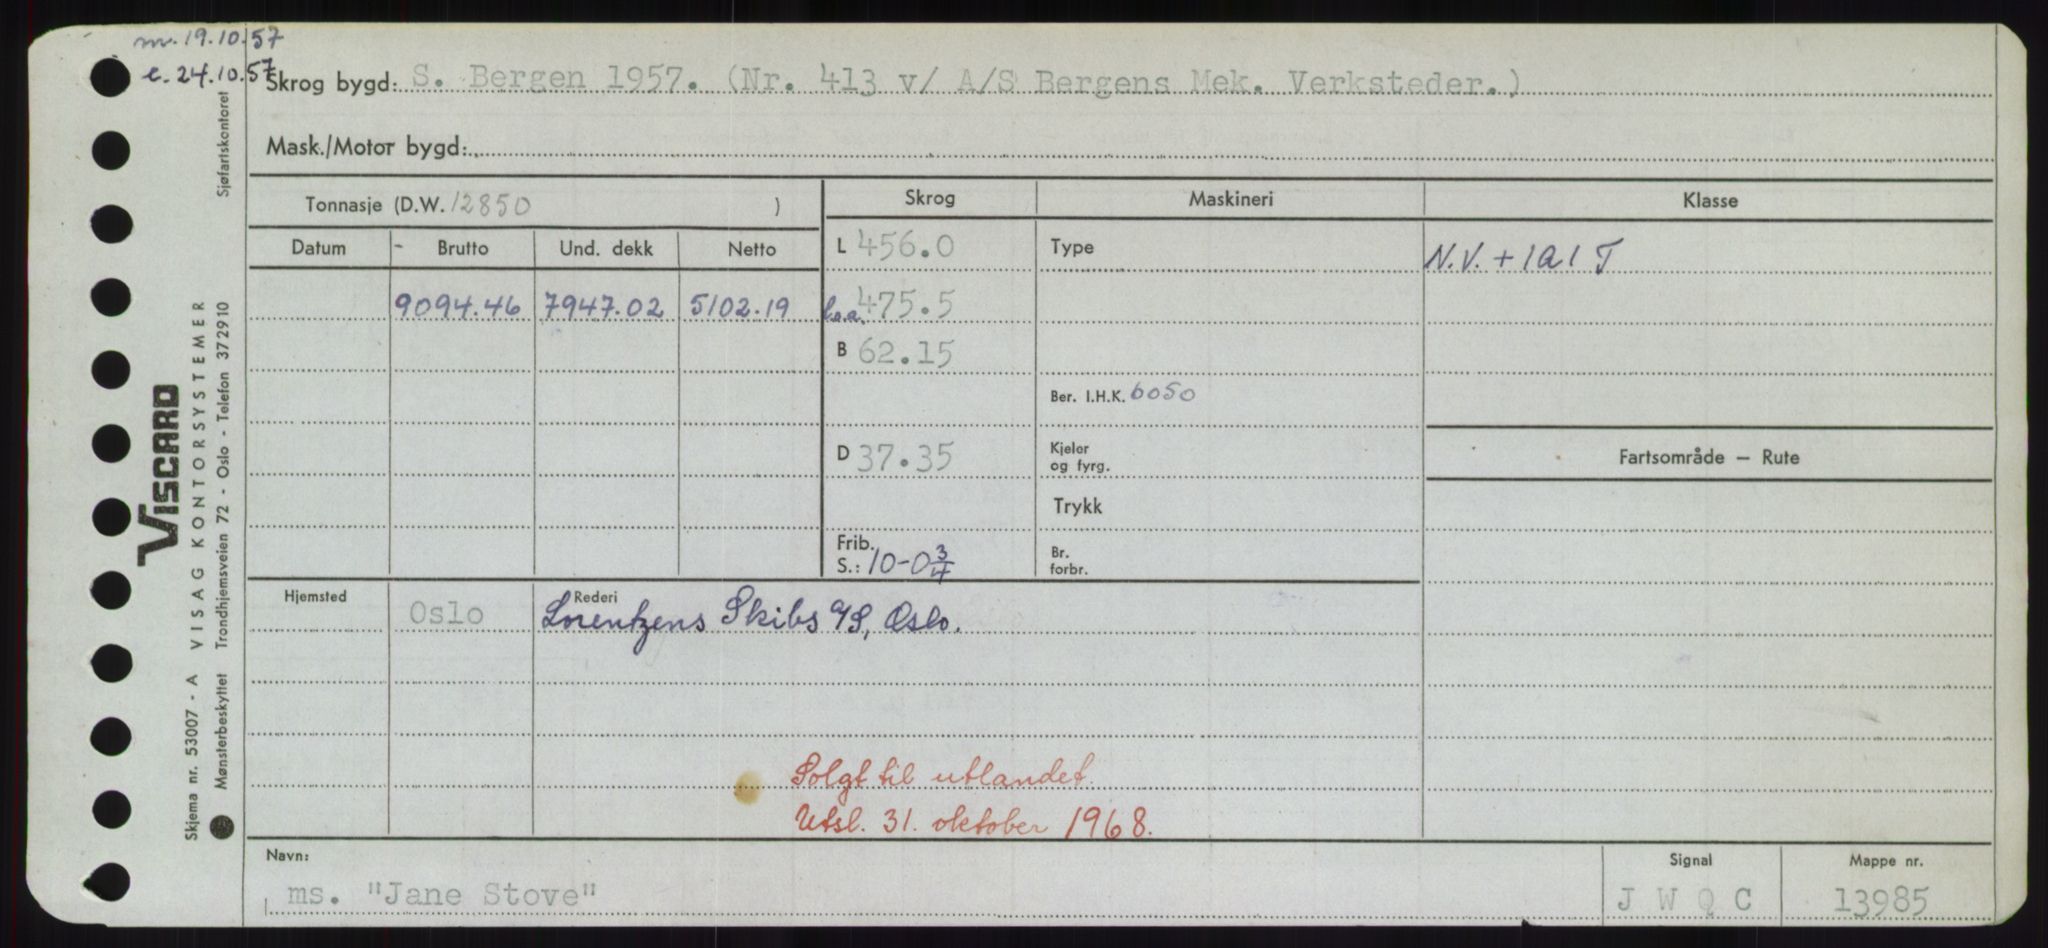 m. 19.10.57
e. 24.10.57
Skrog bygd: S. Bergen 1957. (Nr. 413 v/ A/S Bergens Mek. Verksteder.)
Mask./Motor bygd:
Tonnasje (D.W. 12850 )
Skrog Maskineri Klasse
Datum - Brutto Und. dekk Netto
L 456.0 Type N.V. + 1A1 T
9094.46 7947.02 5102.19 l.o.a. 475.5
B 62.15
Ber. I.H.K. 6050
D 37.35 Kjeler og fyrg.
Fartsområde — Rute
Trykk
Frib. S.: 10-0 3/4
Br. forbr.
Hjemsted Oslo Rederi Lorentzens Skibs A/S, Oslo.
Solgt til utlandet.
Utsl. 31. oktober 1968.
Navn: Signal Mappe nr.
ms. "Jane Stove" J W Q C 13985
VISCARD
VISAG KONTORSYSTEMER
Skjema nr. 53007 - A
Mønsterbeskyttet Trondhjemsveien 72 - Oslo - Telefon 372910
Sjøfartskontoret